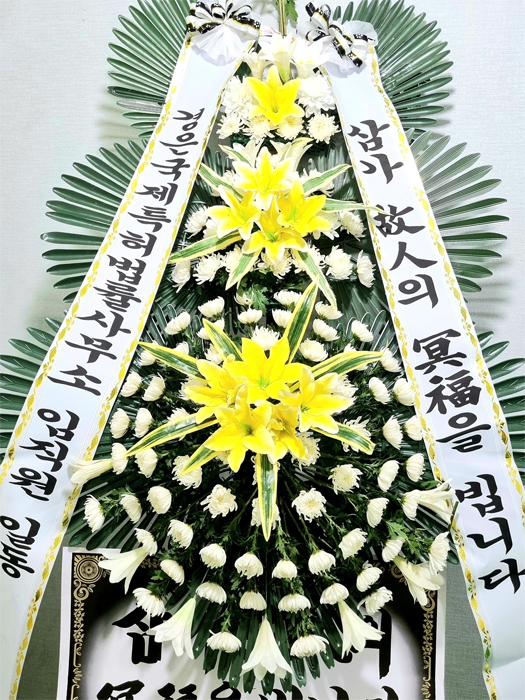 경은국제특허법률사무소 임직원 일동
삼가 故人의 冥福을 빕니다
삼
冥福을